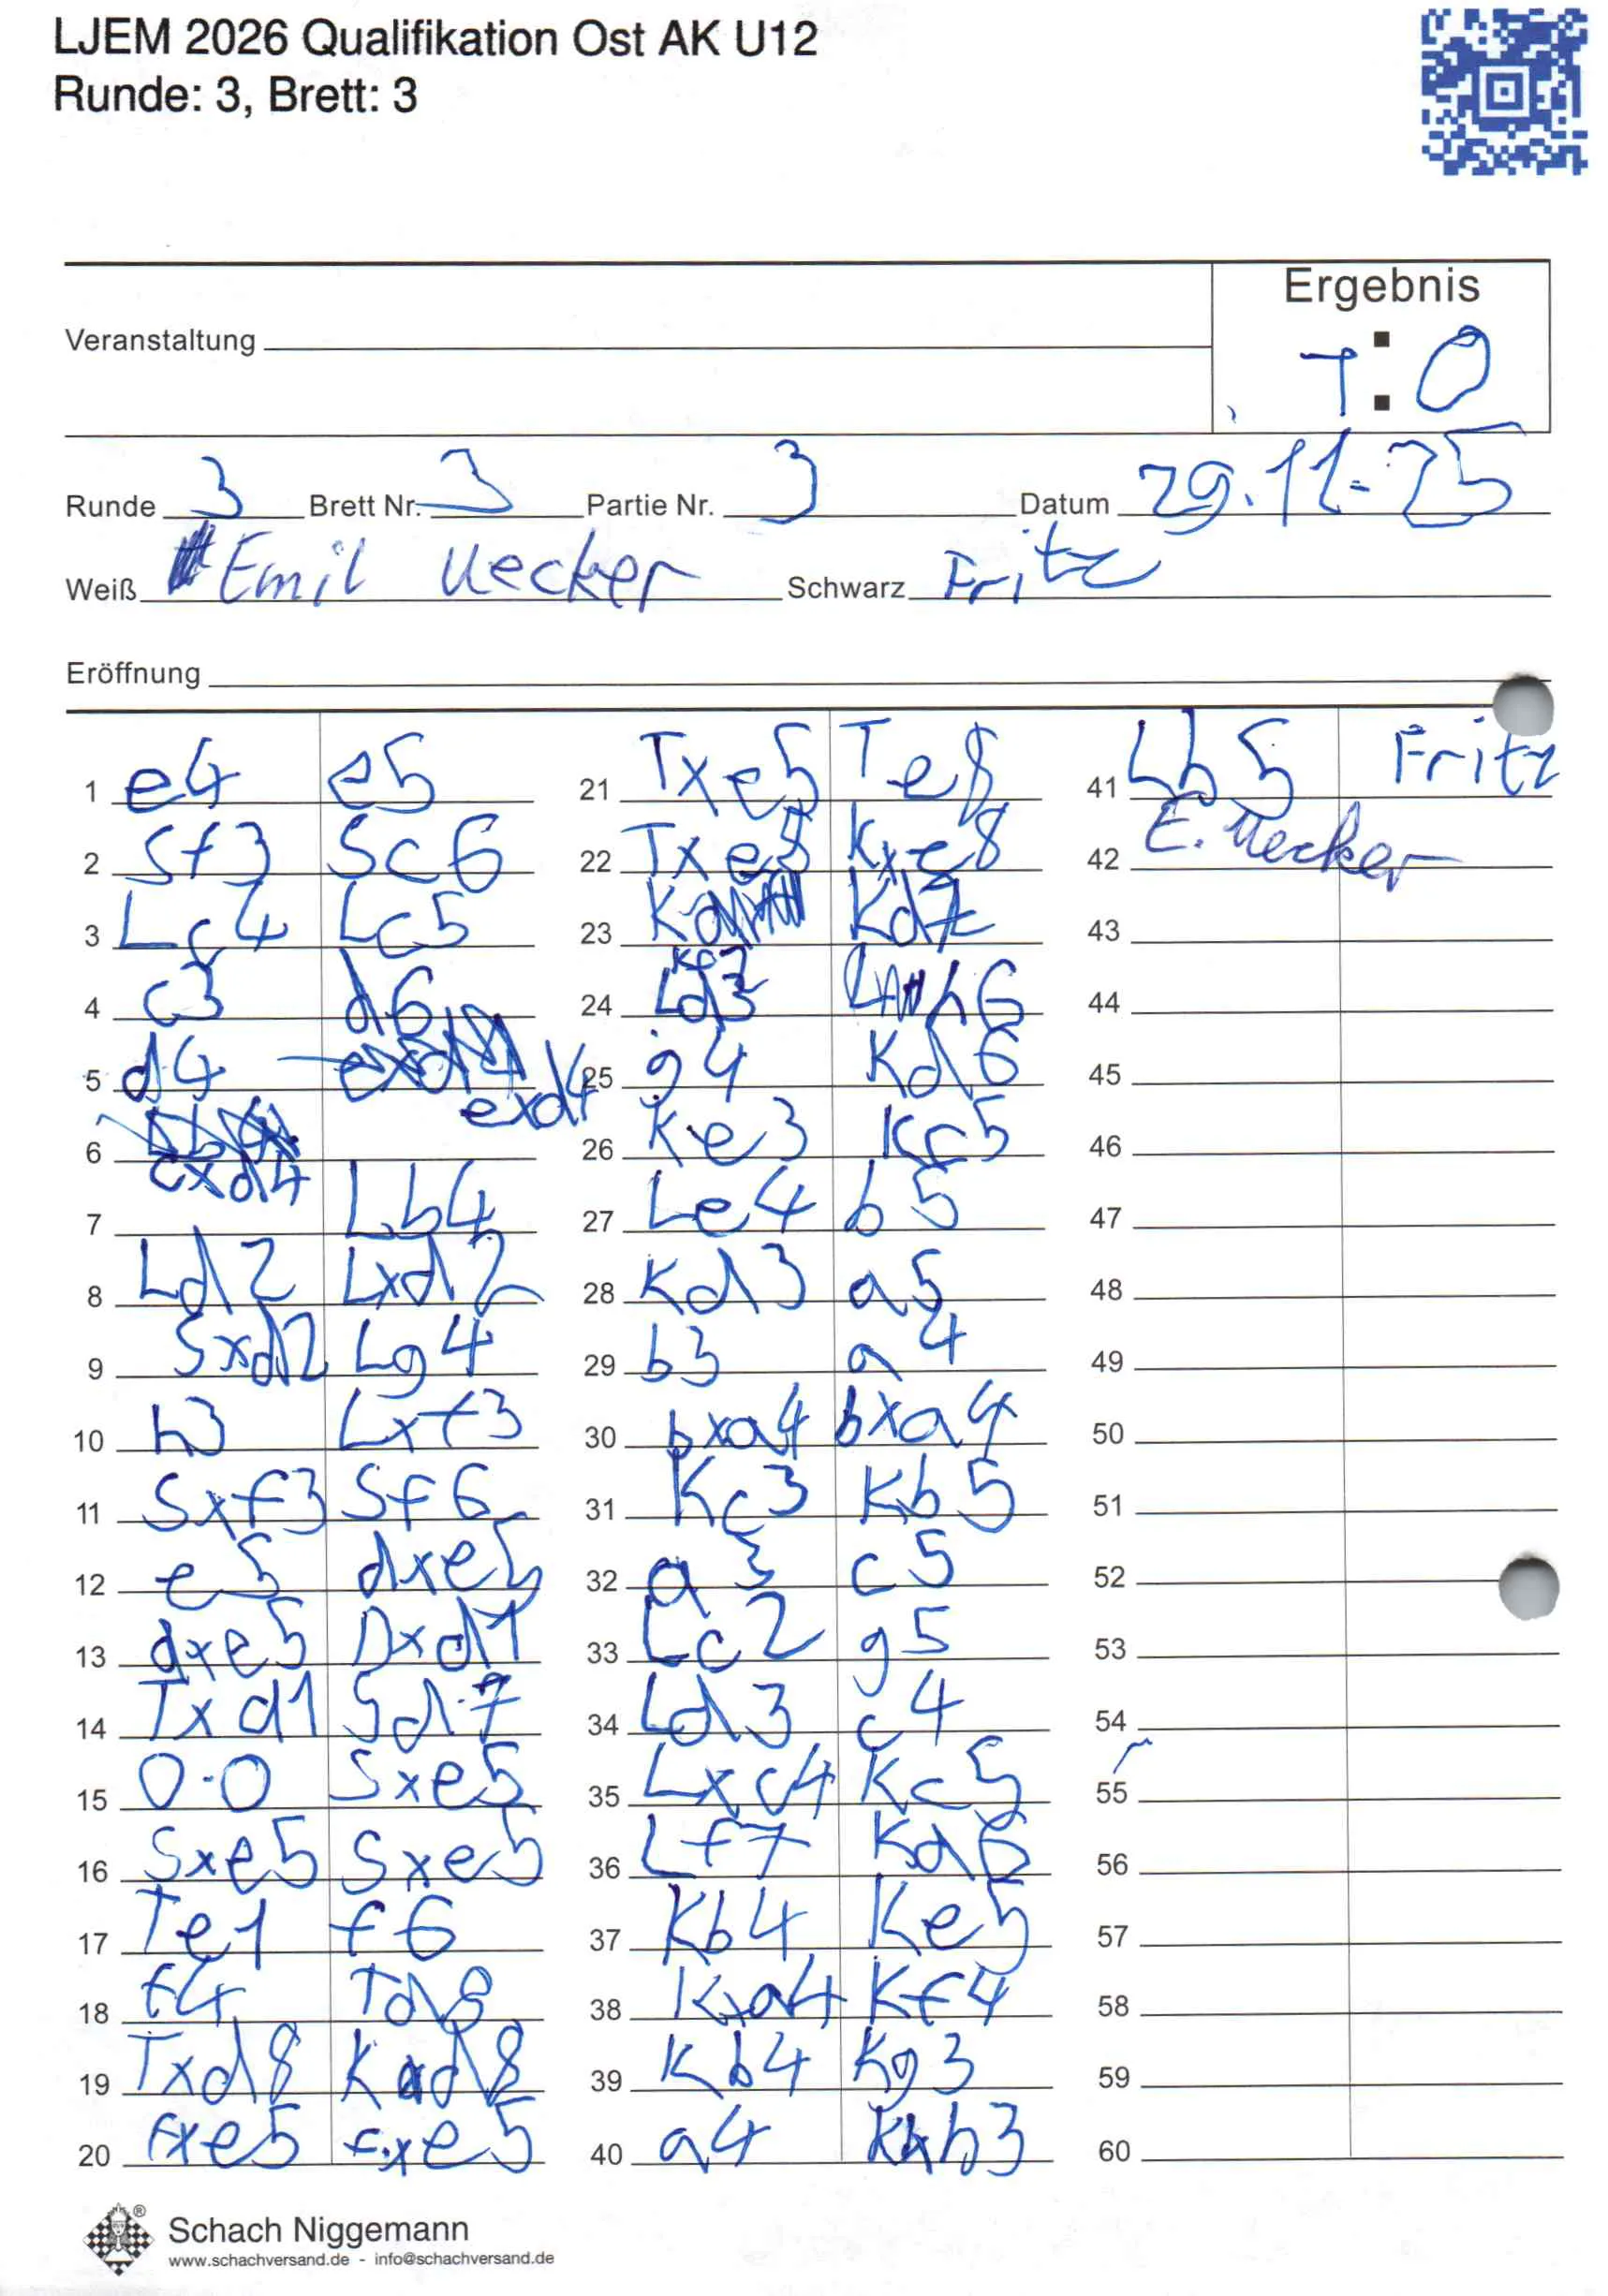 LJEM 2026 Qualifikation Ost AK U12
Runde: 3, Brett: 3
Ergebnis
1:0
Veranstaltung
Runde 3 Brett Nr. 3 Partie Nr. 3 Datum 29.11.25
Weiß Emil Uecker Schwarz Fritz
Eröffnung
1 e4 e5
2 Sf3 Sc6
3 Lc4 Lc5
4 c3 d6
5 d4 exd4
6 cxd4
7 Lb4
8 Ld2 Lxd2
9 Sxd2 Lg4
10 h3 Lxf3
11 Sxf3 Sf6
12 e5 dxe5
13 dxe5 Dxd1
14 Txd1 Sd7
15 0-0 Sxe5
16 Sxe5 Sxe5
17 Te1 f6
18 f4 Td8
19 Txd8 Kxd8
20 fxe5 fxe5
21 Txe5 Te8
22 Txe8 Kxe8
23 Kf2 Kd7
24 Ld3 h6
25 g4 Kd6
26 Ke3 Kc5
27 Le4 b5
28 Kd3 a5
29 b3 a4
30 bxa4 bxa4
31 Kc3 Kb5
32 a3 c5
33 Lc2 g5
34 Ld3 c4
35 Lxc4 Kc5
36 Lf7 Kd6
37 Kb4 Ke5
38 Kxa4 Kf4
39 Kb4 Kg3
40 a4 Kxh3
41 Lb5 Fritz
42 E. Uecker
43
44
45
46
47
48
49
50
51
52
53
54
55
56
57
58
59
60
Schach Niggemann
www.schachversand.de - info@schachversand.de